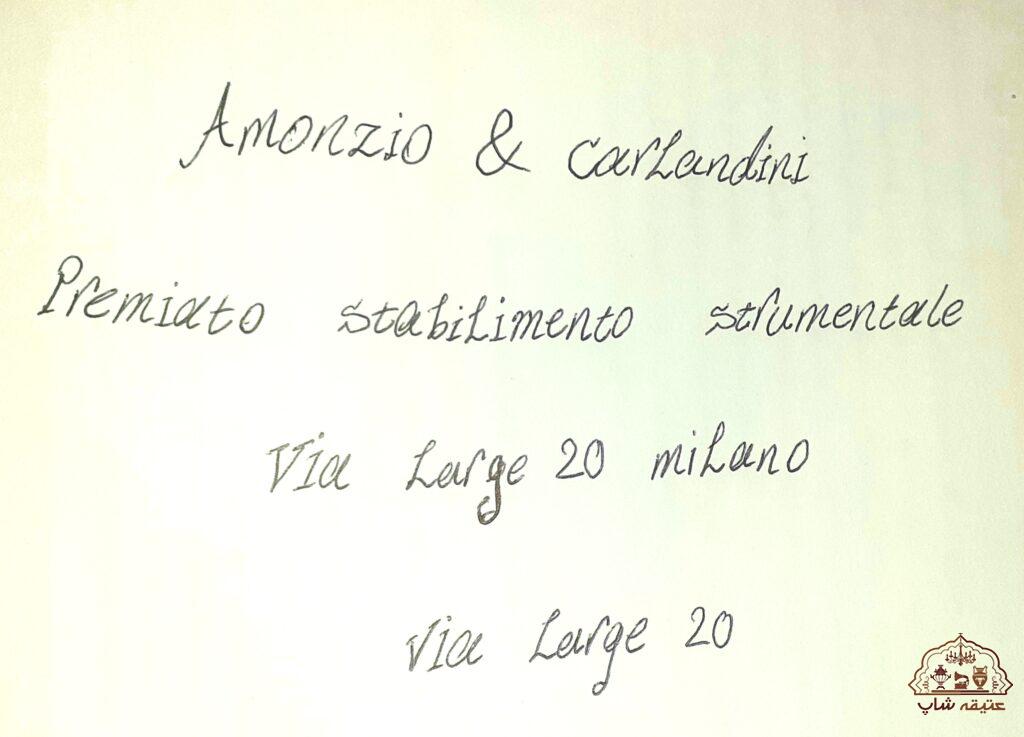 Amonzio & Carlandini
Premiato stabilimento strumentale
Via Large 20 milano
Via Large 20
عتیقه شاپ